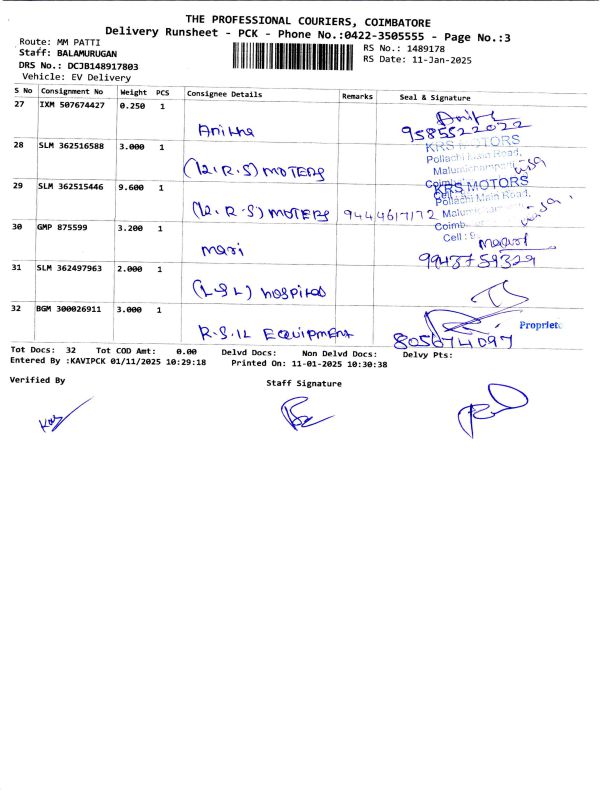 THE PROFESSIONAL COURIERS, COIMBATORE
Delivery Runsheet - PCK - Phone No.:0422-3505555 - Page No.:3
Route: MM PATTI
RS No.: 1489178
Staff: BALAMURUGAN
RS Date: 11-Jan-2025
DRS No.: DCJB148917803
Vehicle: EV Delivery
S No Consignment No Weight PCS Consignee Details Remarks Seal & Signature
27 IXM 507674427 0.250 1
Anitha
9585522022
28 SLM 362516588 3.000 1
KRS MOTORS
Pollachi Main Road,
(K.R.S) MOTERS
29 SLM 362515446 9.600 1
KRS MOTORS
Pollachi Main Road,
(K.R.S) MOTERS 9444617172
30 GMP 875599 3.200 1
Cell :
mari
9943759329
31 SLM 362497963 2.000 1
hospital
32 BGM 300026911 3.000 1
EQUIPMENT
805674097
Tot Docs: 32 Tot COD Amt: 0.00 Delvd Docs: Non Delvd Docs: Delvy Pts:
Entered By :KAVIPCK 01/11/2025 10:29:18 Printed On: 11-01-2025 10:30:38
Verified By Staff Signature